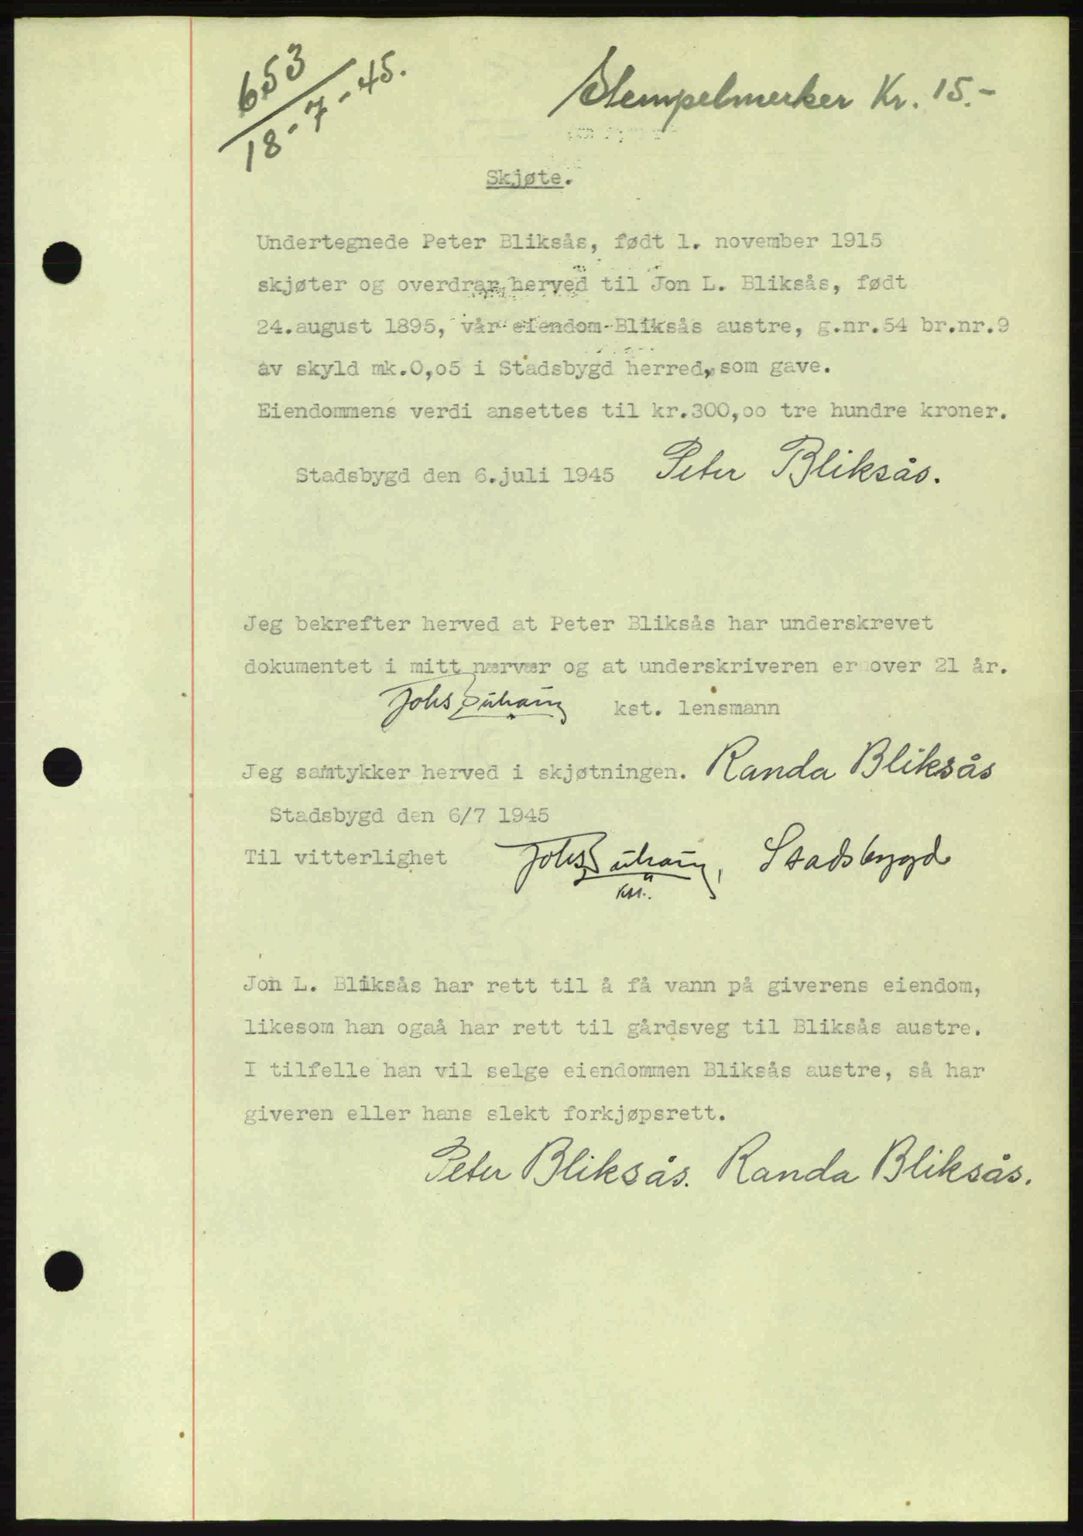 653
18-7-45.
Stempelmerker Kr. 15.-
Skjøte.
Undertegnede Peter Bliksås, født 1. november 1915
skjøter og overdrar herved til Jon L. Bliksås, født
24.august 1895, vår eiendom Bliksås austre, g.nr.54 br.nr.9
av skyld mk.0,05 i Stadsbygd herred, som gave.
Eiendommens verdi ansettes til kr.300,oo tre hundre kroner.
Stadsbygd den 6.juli 1945 Peter Bliksås.
Jeg bekrefter herved at Peter Bliksås har underskrevet
dokumentet i mitt nærvær og at underskriveren er over 21 år.
Johs kst. lensmann
Jeg samtykker herved i skjøtningen. Randa Bliksås
Stadsbygd den 6/7 1945
Til vitterlighet Johs , Stadsbygd
Jon L. Bliksås har rett til å få vann på giverens eiendom,
likesom han ogaå har rett til gårdsveg til Bliksås austre.
I tilfelle han vil selge eiendommen Bliksås austre, så har
giveren eller hans slekt forkjøpsrett.
Peter Bliksås. Randa Bliksås.